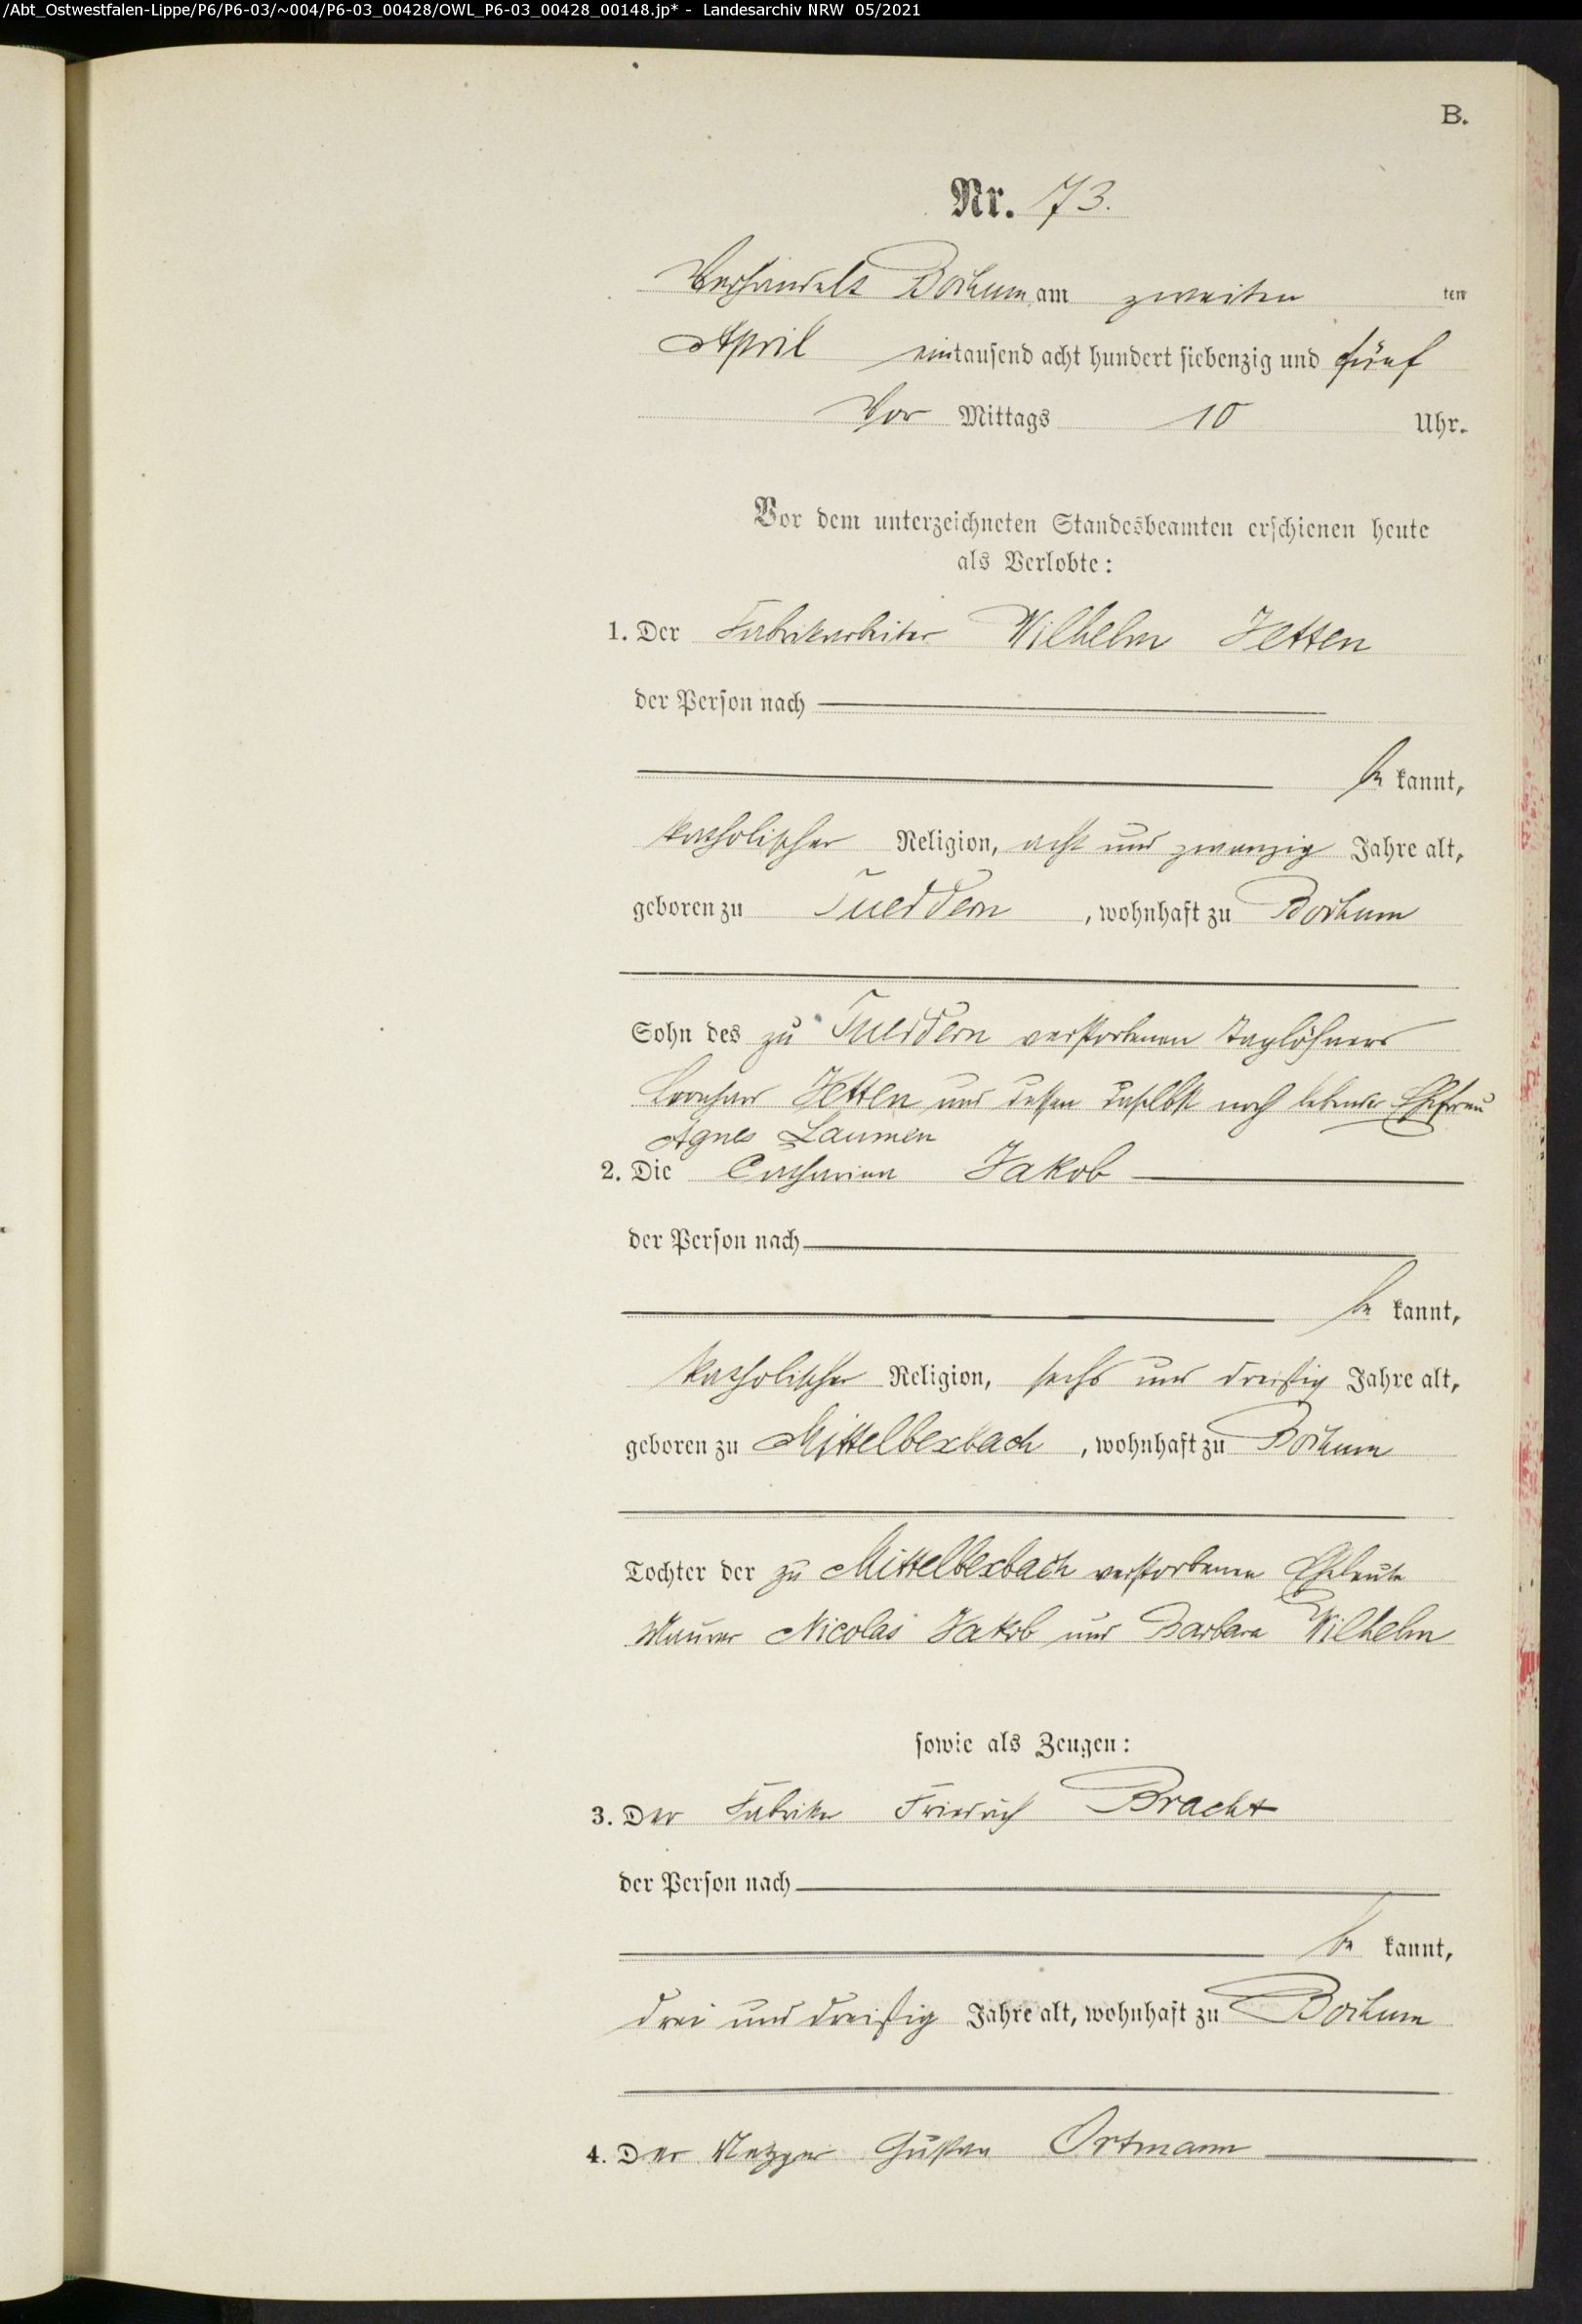 /Abt_Ostwestfalen-Lippe/P6/P6-03/~004/P6-03_00428/OWL_P6-03_00428_00148.jp* - Landesarchiv NRW 05/2021
B.
Nr. 73.
Verhandelt Bochum am zweiten ten
April eintausend acht hundert siebenzig und fünf
Vor Mittags 10 Uhr.
Vor dem unterzeichneten Standesbeamten erschienen heute
als Verlobte:
1. Der Fabrikarbeiter Wilhelm Jetten
der Person nach
be kannt,
katholischer Religion, acht und zwanzig Jahre alt,
geboren zu Tueddern, wohnhaft zu Bochum
Sohn des zu Tueddern verstorbenen Taglöhners
Jetten und dessen daselbst noch lebender Ehefrau
Agnes Laumen
2. Die Catharina Jakob
der Person nach
be kannt,
katholischer Religion, sechs und dreißig Jahre alt,
geboren zu Mittelbexbach, wohnhaft zu Bochum
Tochter der zu Mittelbexbach verstorbenen Eheleute
Maurer Nicolas Jakob und Barbara Wilhelm
sowie als Zeugen:
3. Der Friedrich Bracht
der Person nach
be kannt,
drei und dreißig Jahre alt, wohnhaft zu Bochum
4. Der Metzger Gustav Ortmann